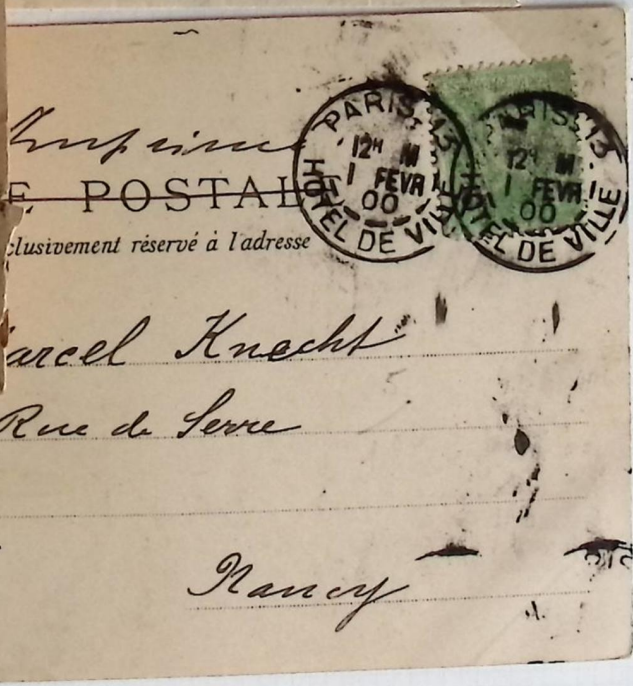 Imprimé
E POSTALE
clusivement réservé à l'adresse
PARIS. 13
12H M
1 FEVR
00
HÔTEL DE VILLE
PARIS. 13
12H M
1 FEVR
00
HÔTEL DE VILLE
arcel Knecht
Rue de Serre
Nancy